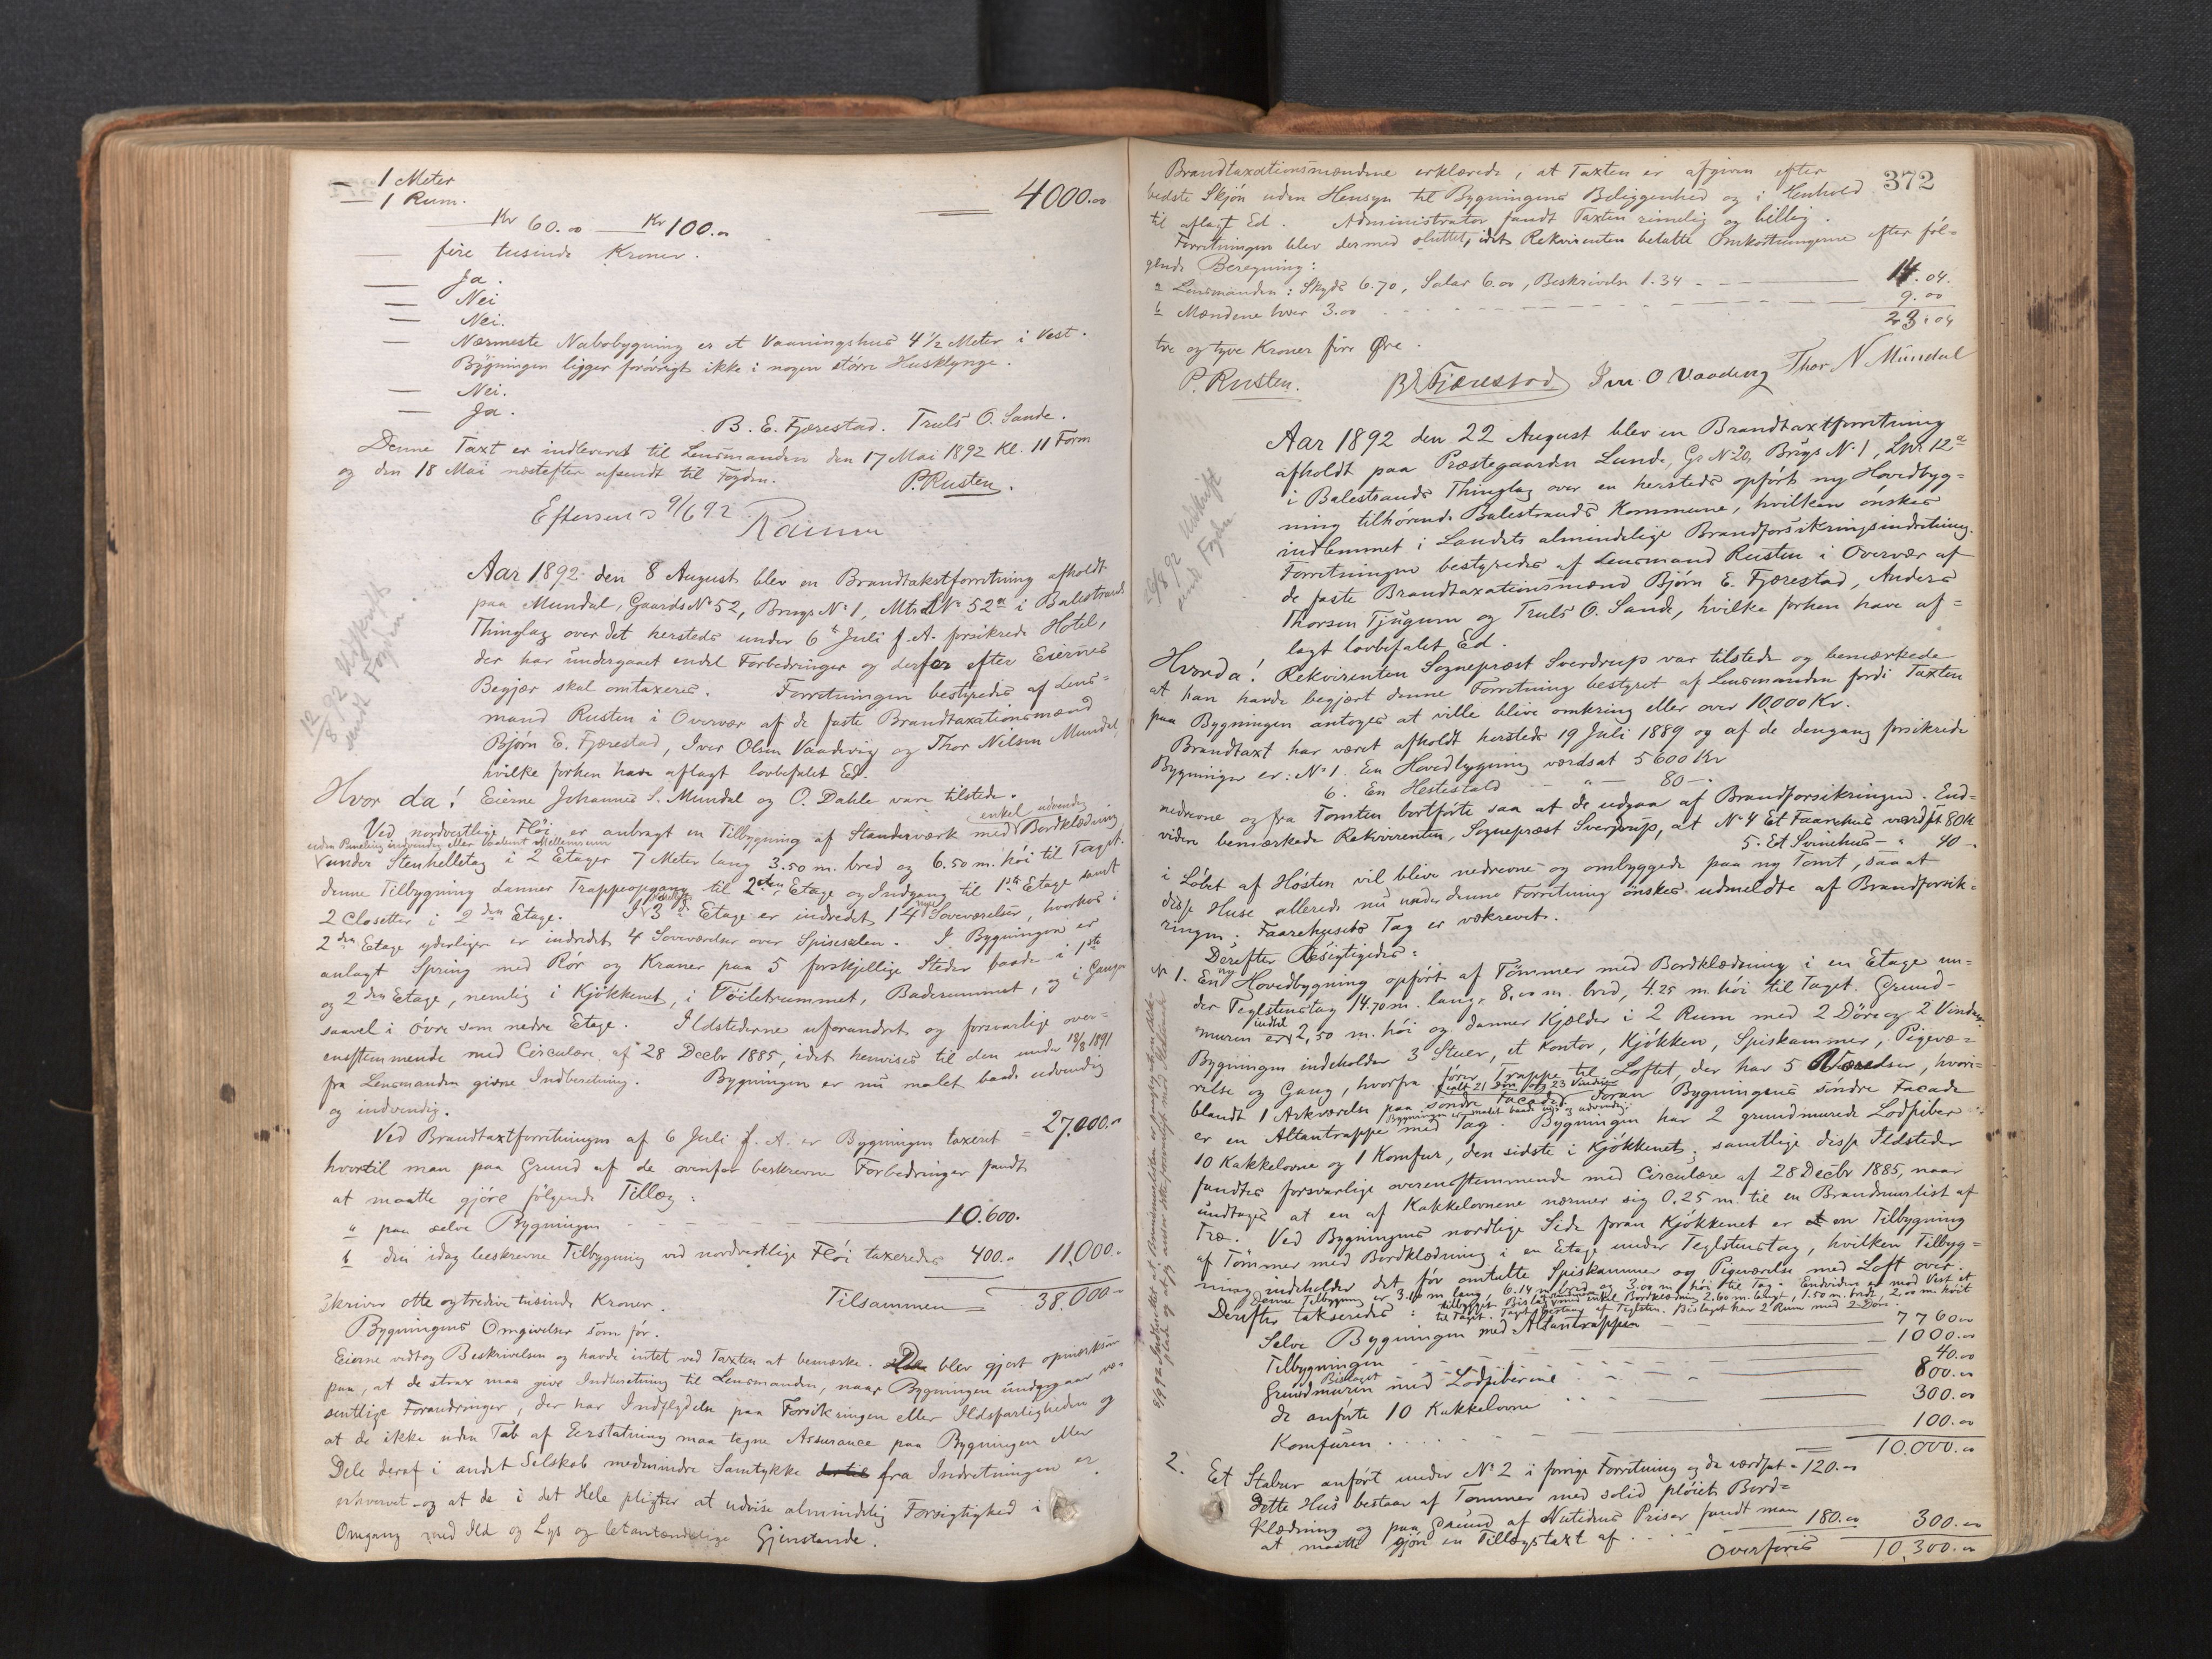 — 1 Meter
— 1 Rum.
4000.00
Kr 60.00 — Kr 100.00
— fire tusinde Kroner.
— Ja.
— Nei
— Nei.
— Nærmeste Nabobygning er et Vaaningshus 4 1/2 Meter i Vest.
Bygningen ligger forøvrigt ikke i nogen større Husklynge.
— Nei.
— Ja.
B. E. Fjærestad. Truls O. Sande.
Denne Taxt er indleveret til Lensmanden den 17 Mai 1892 Kl. 11 Form
og den 18 Mai næstefter afsendt til Fogden.
P. Rusten.
Eftersees 9/6 92
12/8 92 Udskrift
sendt Fogden.
Aar 1892 den 8 August blev en Brandtakstforretning afholdt
paa Mundal, Gaards No 52, Brugs No 1, Mts LNo 52a i Balestrands
Thinglag over det hersteds under 6te Juli f. A. forsikrede Hotel,
der har undergaaet endel Forbedringer og derfor efter Eiernes
Begjær skal omtaxeres. Forretningen bestyredes af Lens-
mand Rusten i Overvær af de faste Brandtaxationsmænd
Bjørn E. Fjærestad, Iver Olsen Vaadevig og Thor Nilsen Mundal,
hvilke forhen have aflagt lovbefalet Ed.
Hvor da! Eierne Johannes S. Mundal og O. Dahle vare tilstede.
enkel udvendig
Ved nordvestlige Fløi er anbragt en Tilbygning af Standerværk med Bordklædning
uden Paneling indvendig eller Mellemrum
under Stenhelletag i 2 Etager 7 Meter lang 3.50 m. bred og 6.50 m. høi til Taget.
denne Tilbygning danner Trappeopgang til 2den Etage og Indgang til 1ste Etage samt
2 Closetter i 2den Etage. I 3die Etage er indredet 14 nye Soveværelser, hvorhos i
2den Etage yderligere er indredet 4 Soveværelser over Spisesalen. I Bygningen er
anlagt Spring med Rør og Kraner paa 5 forskjellige Steder baade i 1ste
og 2den Etage, nemlig i Kjøkkenet, i Toiletrummet, Baderummet, og i Gangen
saavel i øvre som nedre Etage. Ildstederne uforandret og forsvarlige over-
ensstemmende med Circulære af 28 Decbr 1885, idet henvises til den under 18/8 1891
fra Lensmanden givne Indberetning. Bygningen er nu malet baade udvendig
og indvendig.
Ved Brandtaxtforretningen af 6 Juli f. A. er Bygningen taxeret = 27,000.00
hvortil man paa Grund af de ovenfor beskrevne Forbedringer fandt
at maatte gjøre følgende Tillæg:
a paa selve Bygningen — 10.600.
b den idag beskrevne Tilbygning ved nordvestlige Fløi taxeredes 400.00 11,000.-
Skriver otte og tredive tusinde Kroner. Tilsammen = 38,000.00
Bygningens Omgivelser som før.
Eierne vedtog Beskrivelsen og havde intet ved Taxten at bemærke. De blev gjort opmærksom
paa, at de strax maa give Indberetning til Lensmanden, naar Bygningen undergaar væ-
sentlige Forandringer, der har Indflydelse paa Forsikringen eller Ildsfarligheden og
at de ikke uden Tab af Erstatning maa tegne Assurance paa Bygningen eller
Dele deraf i andet Selskab medmindre Samtykke dertil fra Indretningen er
erhvervet og at de i det Hele pligter at udvise almindelig Forsigtighed i
Omgang med Ild og Lys og letantændelige Gjenstande.
372
Brandtaxationsmændene erklærede, at Taxten er afgiven efter
bedste Skjøn uden Hensyn til Bygningens Beliggenhed og i Henhold
til aflagt Ed. Administrator fandt Taxten rimelig og billig.
Forretningen blev dermed sluttet, idet Rekvirenten betalte Omkostningerne efter føl-
gende Beregning:
a Lensmanden: Skyds 6.70, Salær 6.00, Beskrivelse 1.34 — 14.04.
b Mændene hver 3.00 — 9.00
23.04
tre og tyve Kroner fire Øre.
P. Rusten. B E Fjærestad Iver O Vaadevig Thor N Mundal
26/8 92 Udskrift
sendt Fogden
Aar 1892 den 22 August blev en Brandtaxtforretning
afholdt paa Præstegaarden Lunde, Gs No 20, Brugs No 1, LNr 12a
i Balestrands Thinglag over en hersteds opført ny Hovedbyg-
ning tilhørende Balestrands Kommune, hvilken ønskes
indlemmet i Landets almindelige Brandforsikringsindretning.
Forretningen bestyredes af Lensmand Rusten i Overvær af
de faste Brandtaxationsmænd Bjørn E. Fjærestad, Anders
Thorsen Tjugum og Truls O. Sande, hvilke forhen have af-
lagt lovbefalet Ed.
Hvorda! Rekvirenten Sognepræst Sverdrup var tilstede og bemærkede
at han havde begjært denne Forretning bestyret af Lensmanden fordi Taxten
paa Bygningen antoges at ville blive omkring eller over 10,000 Kr.
Brandtaxt har været afholdt hersteds 19 Juli 1889 og af de dengang forsikrede
Bygninger er: No 1. En Hovedbygning værdsat 5600 Kr
6. En Hestestald — " — 80 —
nedrevne og fra Tomten bortførte saa at de udgaa af Brandforsikringen. End-
videre bemærkede Rekvirenten, Sognepræst Sverdrup, at No 4 Et Faarehus værdsat 80 Kr
5. Et Svinehus — " 40 —
i Løbet af Høsten vil blive nedrevne og ombyggede paa ny Tomt, saaat
disse Huse allerede nu under denne Forretning ønskes udmeldte af Brandforsik-
ringen. Faarehusets Tag er vækrevet.
Derefter Besigtigedes:
No 1. En ny Hovedbygning opført af Tømmer med Bordklædning i en Etage un-
der Teglstenstag 14.70 m. lang, 8,00 m. bred, 4.25 m. høi til Taget. Grund-
muren er indtil 2,50 m. høi og danner Kjælder i 2 Rum med 2 Døre og 2 Vinduer.
Bygningen indeholder 3 Stuer, et Kontor, Kjøkken, Spiskammer, Pigevæ-
relse og Gang, hvorfra fører Trappe til Loftet, der har 5 Værelser, hvori-
ialt 21 Døre og 23 Vinduer
blandt 1 Arkværelse paa søndre Facade. Foran Bygningens søndre Facade
Bygningen er malet baade ind- og udvendig.
er en Altantrappe med Tag. Bygningen har 2 grundmurede Lodpiber
10 Kakkelovne og 1 Komfur, den sidste i Kjøkkenet; samtlige disse Ildsteder
fandtes forsvarlige overensstemmende med Circulære af 28 Decbr 1885, naar
undtages at en af Kakkelovnene nærmer sig 0.25 m. til en Brandmurlist af
Træ. Ved Bygningens nordlige Side foran Kjøkkenet er en Tilbygning
af Tømmer med Bordklædning i en Etage under Teglstenstag, hvilken Tilbyg-
ning indeholder det før omtalte Spiskammer og Pigeværelse med Loft over.
Denne Tilbygning er 3.10 m lang, 6.14 m bred og 3.00 m høi til Tag. Endvidere er mod Vest et
tilbygget Bislag med enkel Bordklædning 2.60 m. langt, 1.50 m. bredt, 2.00 m. høit
Derefter takseredes: til Taget. Taget af Teglsten. Bislaget har 2 Rum med 2 Døre.
Selve Bygningen med Altantrappen — 7760.00
Tilbygningen — 1000.00
Bislaget — 40.00
Grundmuren med Lodpiberne — 800.00
de anførte 10 Kakkelovne — 300.00
Komfuren — 100.00
10.000.00
2. Et Stabur anført under No 2 i forrige Forretning og da værdsat = 120.00
Dette Hus bestaar af Tømmer med solid pløiet Bord-
klædning og paa Grund af Nutidens Priser fandt man
at maatte gjøre en Tillægstaxt af — 180.00 300.00
Overføres 10,300.00